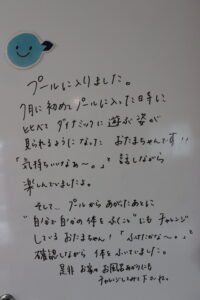 プールに入りました。
7月に初めてプールに入った時に
比べてダイナミックに遊ぶ姿が
見られるようになった おたまちゃんです!!
「気持ちいいなぁ〜。」と話しながら
楽しんでいましたよ。
そして… プールからあがったあとに
"自分で自分の体をふくこと"にもチャレンジ
しているおたまちゃん!「ふけたかな〜。」と
確認しながら 体をふいていました。
是非 お家の お風呂あがりにも
チャレンジしてみて下さいね。